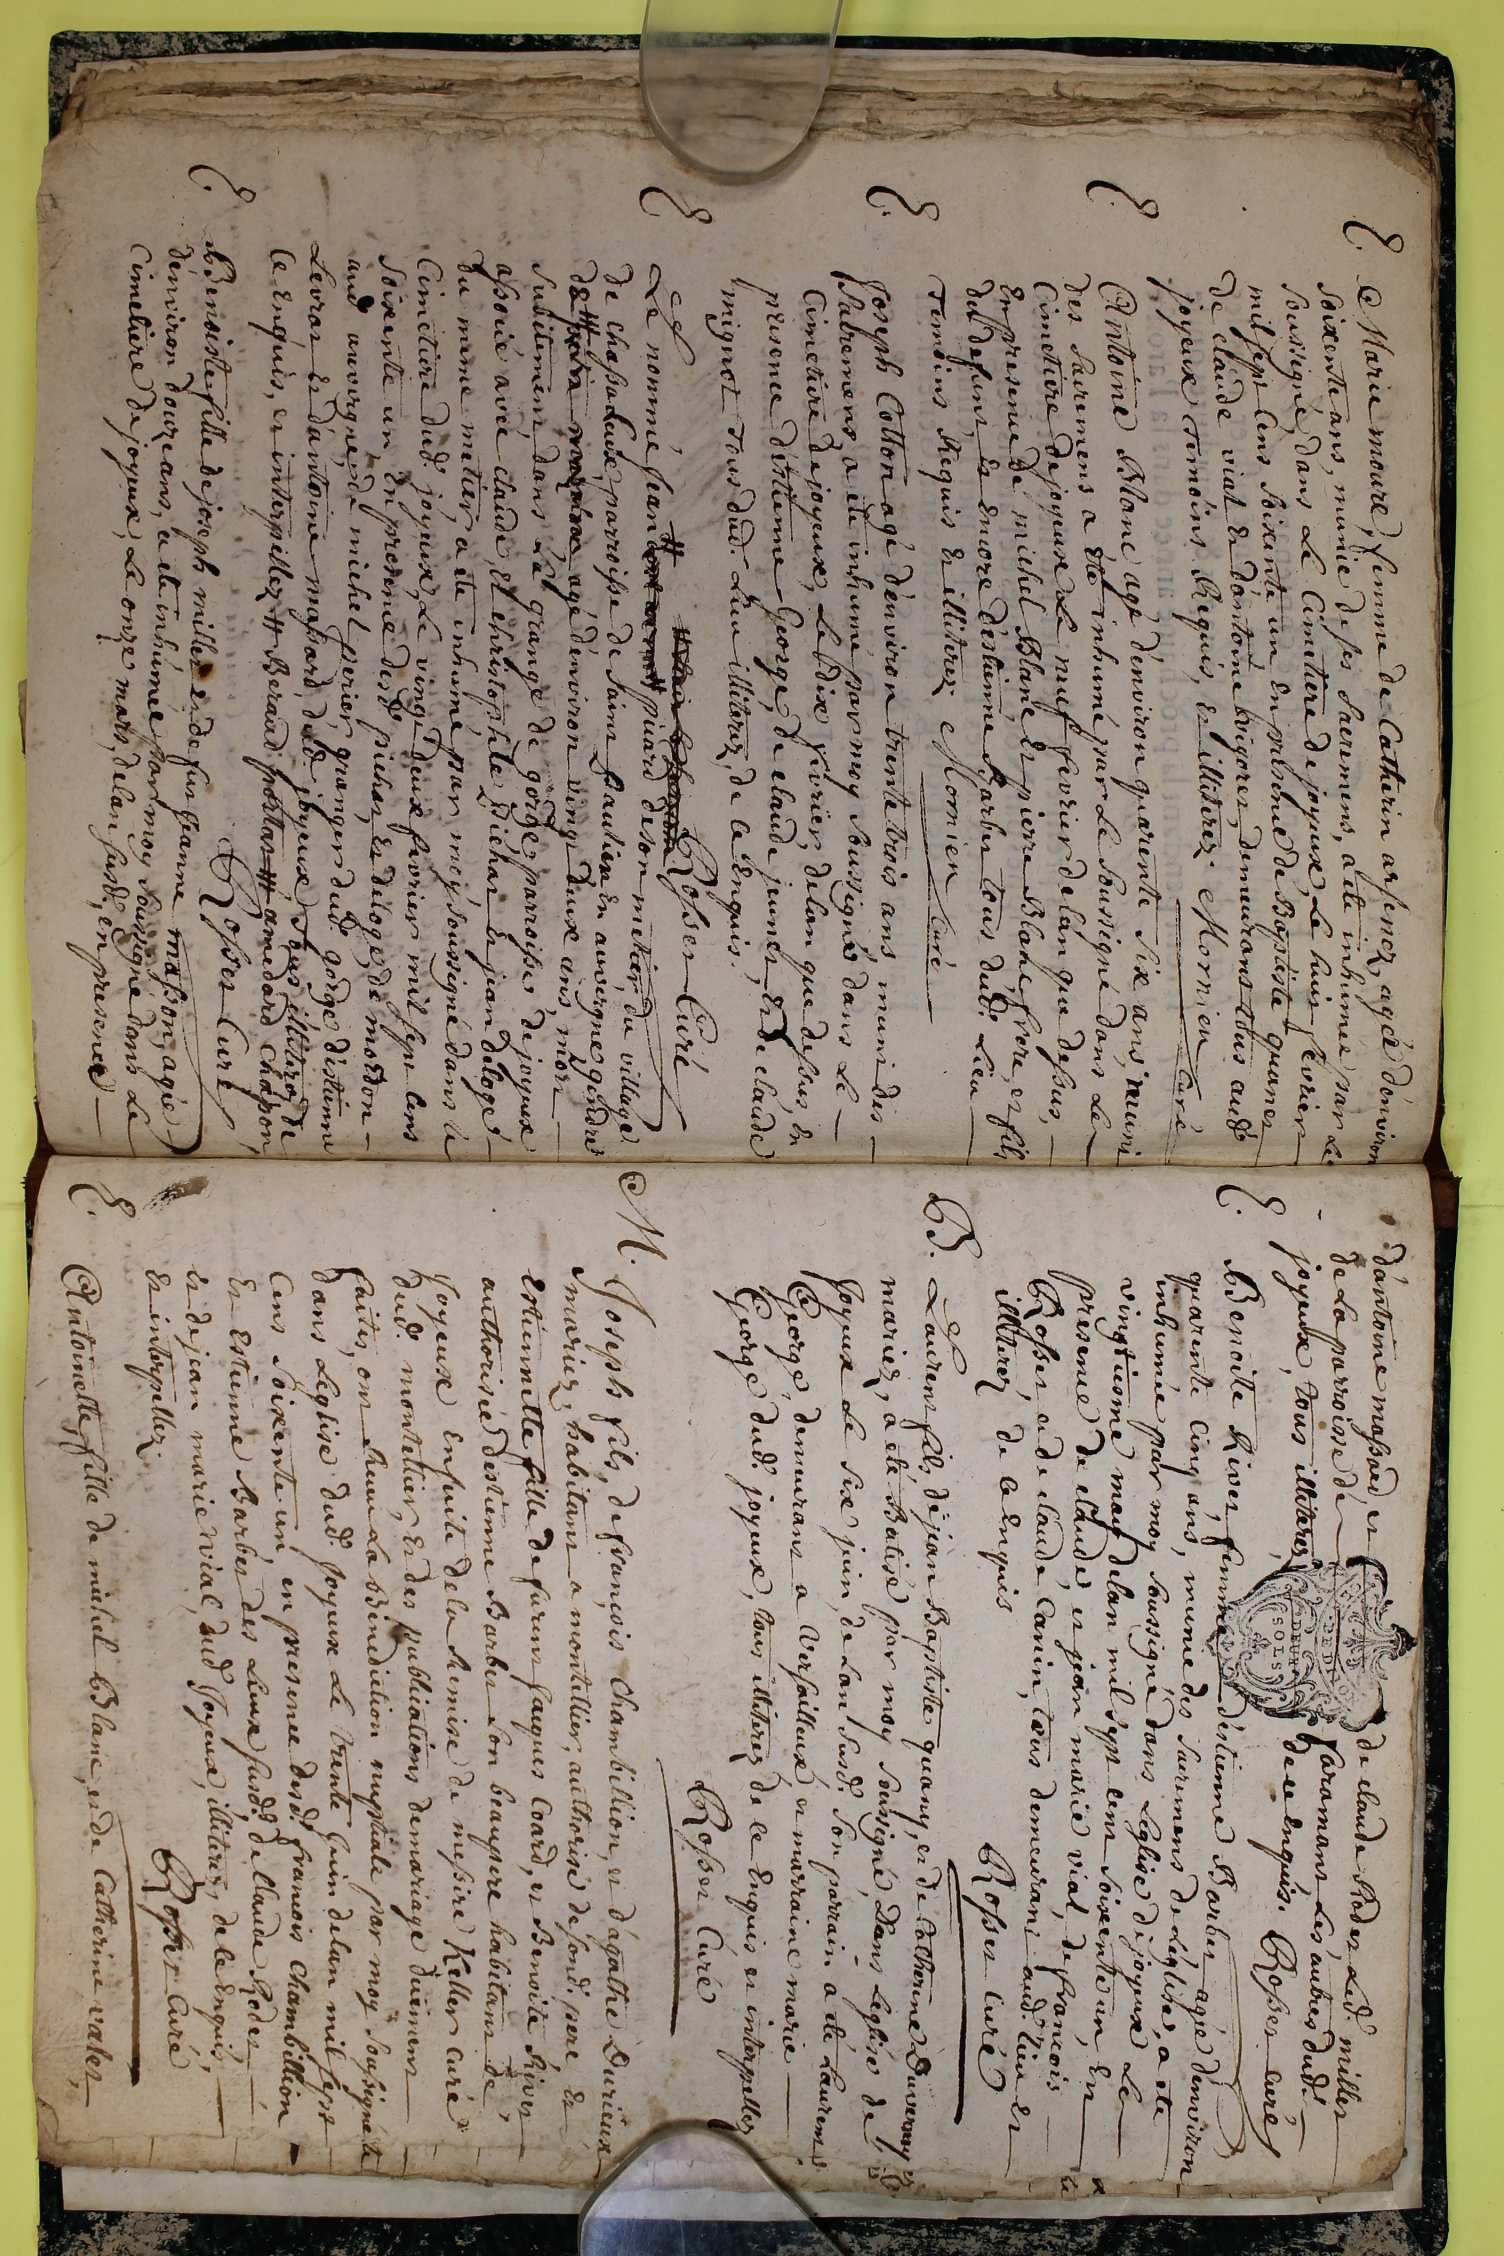 E. Marie moure, femme de Catherin arsenez, agée d'environ
soixente ans, munie de ses sacremens, a eté inhumée par le
soussigné, dans le Cimetiere de joyeux, le huit fevrier
mil sept cens soixente un En presence de Baptiste quanet
de claude vial Et d'antoine brigoret, demeurans tous aud.
joyeux temoins Requis, Et illiterez Mornieu Curé
E. Antoine Blanc agé d'environ quarente six ans, muni
des sacremens a été inhumé par le soussigné dans le
Cimetiere de joyeux le neuf fevrier de l'an que dessus,
En presence de michel Blanc Et pierre Blanc, frere, et fils
dud. defunt, Et Encore d'estienne Barbet tous dud. Lieu
temoins Requis Et illiterez Mornieu Curé
E. Joseph Cotton agé d'environ trente trois ans muni des
sacremens, a eté inhumé par moy soussigné, dans le
Cimetiere de joyeux, le dix fevrier, de l'an que dessus, En
presence d'estienne George, de claude jeunet, Et de claude
mignot tous dud. Lieu illiterez, de ce Enquis.
Rosset Curé
E Le nommé jean picard de son metier, du village
de chassaleux, parroisse de saint sautier En auvergne gendre
de agé d'environ vingt deux ans, mort
subitement dans la grange de gorge, parroisse, de joyeux
associé avec claude, Et christophle pichat Et jean deloge
du meme metier, a eté inhumé par moy soussigné dans le
Cimetiere dud. joyeux, le vingt deux fevrier mil sept cens
soixente un En presence desd. pichat Et deloge, de mordon
aud. auvergne, de michel perier granger dud. gorge d'estienne
Levrat Et d'antoine massard, dud. joyeux tous illiterez, de
ce Enquis, et interpellez # Beraud amedard Chapon
Rosset Curé
E. Benoiste fille de joseph millet et de fut jeanne masson, agée
d'environ douze ans, a eté inhumée par moy soussigné dans le
Cimetiere de joyeux, le onze mars, de l'an susd., en presence
d'antoine massard, et de claude Rodet Led. millet
de la parroisse de Saromans, les autres dud.
joyeux, tous illiterez de ce Enquis. Rosset curé
DEUX SOLS
E. Benoitte River femme d'estienne Barbet agée d'environ
quarente cinq ans, munie des sacremens de l'eglise, a eté
inhumée par moy soussigné dans l'eglise de joyeux le
vingtieme may de l'an mil sept cent soixente un, En
presence de claude, et jean marie vial, de francois
Rosset et de claude Canin, tous demeurant aud. Lieu Et
illiterez, de ce Enquis
Rosset curé
B. Laurent fils de jean Baptiste quany, et de Catherine Duverney
mariez, a eté Batisé par moy soussigné, Dans l'eglise de
Joyeux le six juin, de l'an susd. Son parrain a eté Laurent
George, demeurant a Versailleux, et marraine marie
George dud. joyeux, tous illiterez de ce Enquis et interpellez
Rosset Curé
M. Joseph fils, de francois chambillion, et d'agathe Durieux
mariez, habitant a montellier, authorisé de sond. pere Et
Estiennette fille de furent jaques Coard, et Benoite River
authorisée d'estienne Barbet son beaupere habitant de
Joyeux Ensuite de la Remise de messire Keller curé
dud. montellier, Et des publications de mariage duement
faites, ont Receu la Benediction nuptiale par moy soussigné
dans l'eglise dud. Joyeux le trente juin de l'an mil sept
Cens soixente un, en presence desd. francois chambillion
Et Estienne Barbet des Lieux susd. de Claude Rodet
Et de jean marie vial, dud. Joyeux, illiterez, de ce Enquis
Et interpellez
Rosset Curé
E. Antoinette, fille de michel Blanc, et de Catherine valet,